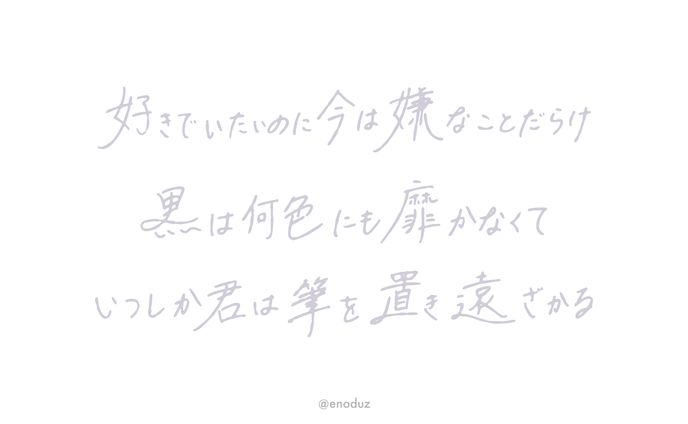 好きでいたいのに今は嫌なことだらけ
黒は何色にも靡かなくて
いつしか君は筆を置き遠ざかる
@enoduz